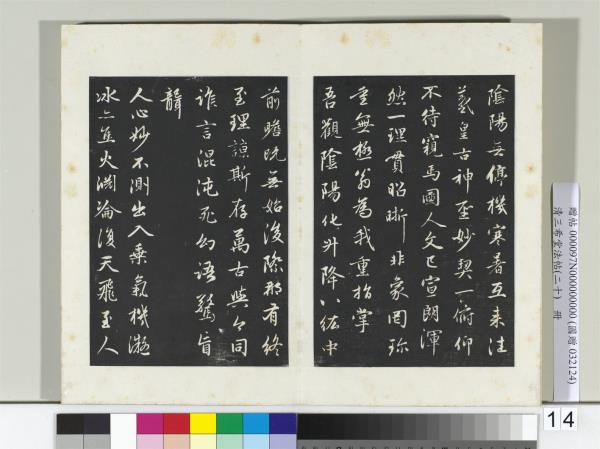 陰陽無停機寒暑互来往
羲皇古神聖妙契一俯仰
不待窺馬圖人文已宣朗渾
然一理貫昭晣非象罔珍
重無極翁為我重指掌
吾觀陰陽化升降八紘中
前瞻既無始後際那有終
至理諒斯存萬古與今同
誰言混沌死幻語驚盲
聾
人心妙不測出入乘氣機凝
冰亦焦火淵淪復天飛至人
贈帖 000097N000000000 (國贈 032124)
清三希堂法帖(二十) 冊
14